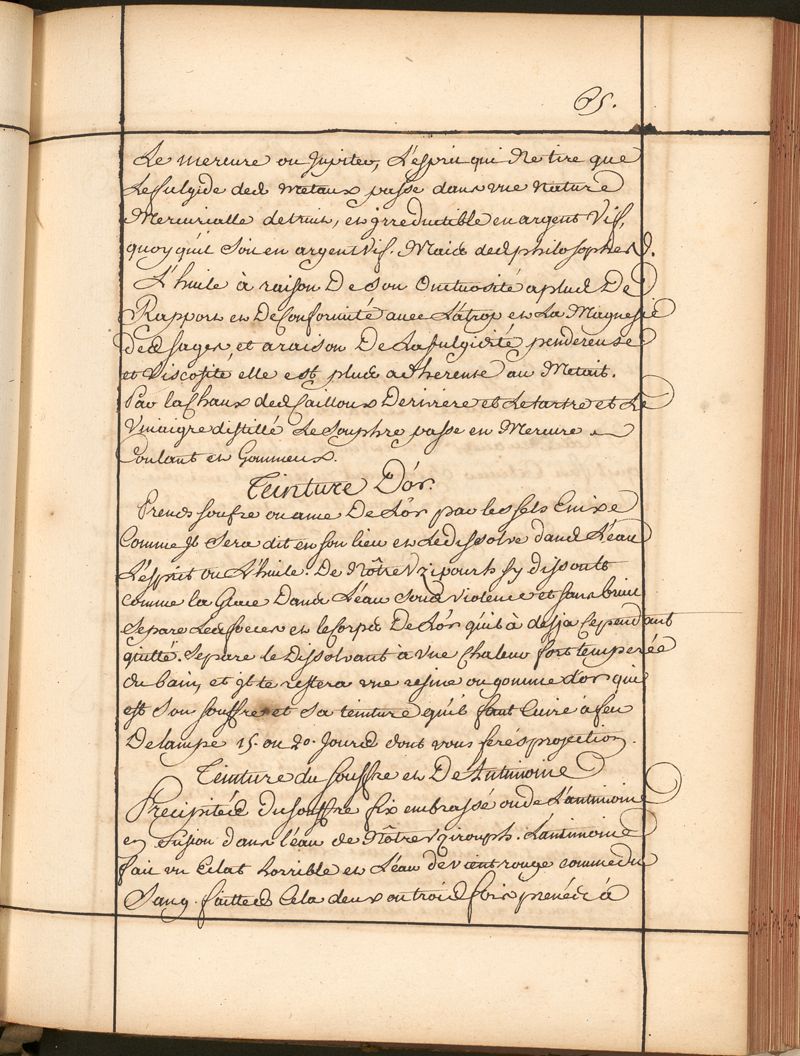 65.
Le mercure ou Jupiter, L'esprit qui Ne tire que
Le fulgide des metaux passe dans vne Nature
Mercurialle detruit, et jrreductible en argent Vif,
quoy quil Soit en argent Vif. Mais des philosophes.
L'huile à raison De son Onctuosité a plus De
Rapport et De Conformité avec L'atrop et La Magnesie
des Sages, et a raison De La fulgidité pendereuse
et Viscosité, elle est plus adherente au Metail.
Par la Chaux des Cailloux De riviere et Le tartre et Le
Vinaigre distillé Le Souphre passe en Mercure
Coulant et Gommeux.
Teinture D'or.
Prends soufre ou ame De L'or par les sels Enixe
Comme Jl Sera dit en son lieu et Le dissolve dans L'eau
L'esprit ou L'huile. De Nôtre s'y dissoult
comme la Glace Dans L'eau Sans Violence et sans bruit
Separe Les feces et le Corps De L'or quil à desja Cependant
quitté. Separe le Dissolvant à Vne Chaleur fort temperée
du bain, et Jl te restera vne resine ou gomme d'or qui
est Son souffre et Sa teinture qu'il faut Cuire à feu
De lampe 15. ou 20. Jours dont vous ferés projection.
Teinture du Souffre et De Lutimoine
Precipités Du souffre fix embrassé ou de L'antimoine
en fusion dans l'eau de Nôtre Lantimoine
fait vn Eclat horrible et L'eau devient rouge comme du
Sang. faittes Cela deux ou trois fois prenés à